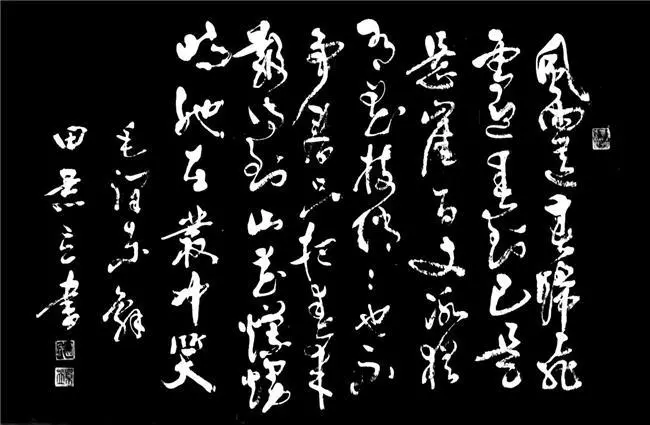 風雨送春歸飛
雪迎春到已是
懸崖百丈冰猶
有花枝俏々也不
争春只把春来
報待到山花爛熳
時她在叢中笑
毛澤东辭
田書